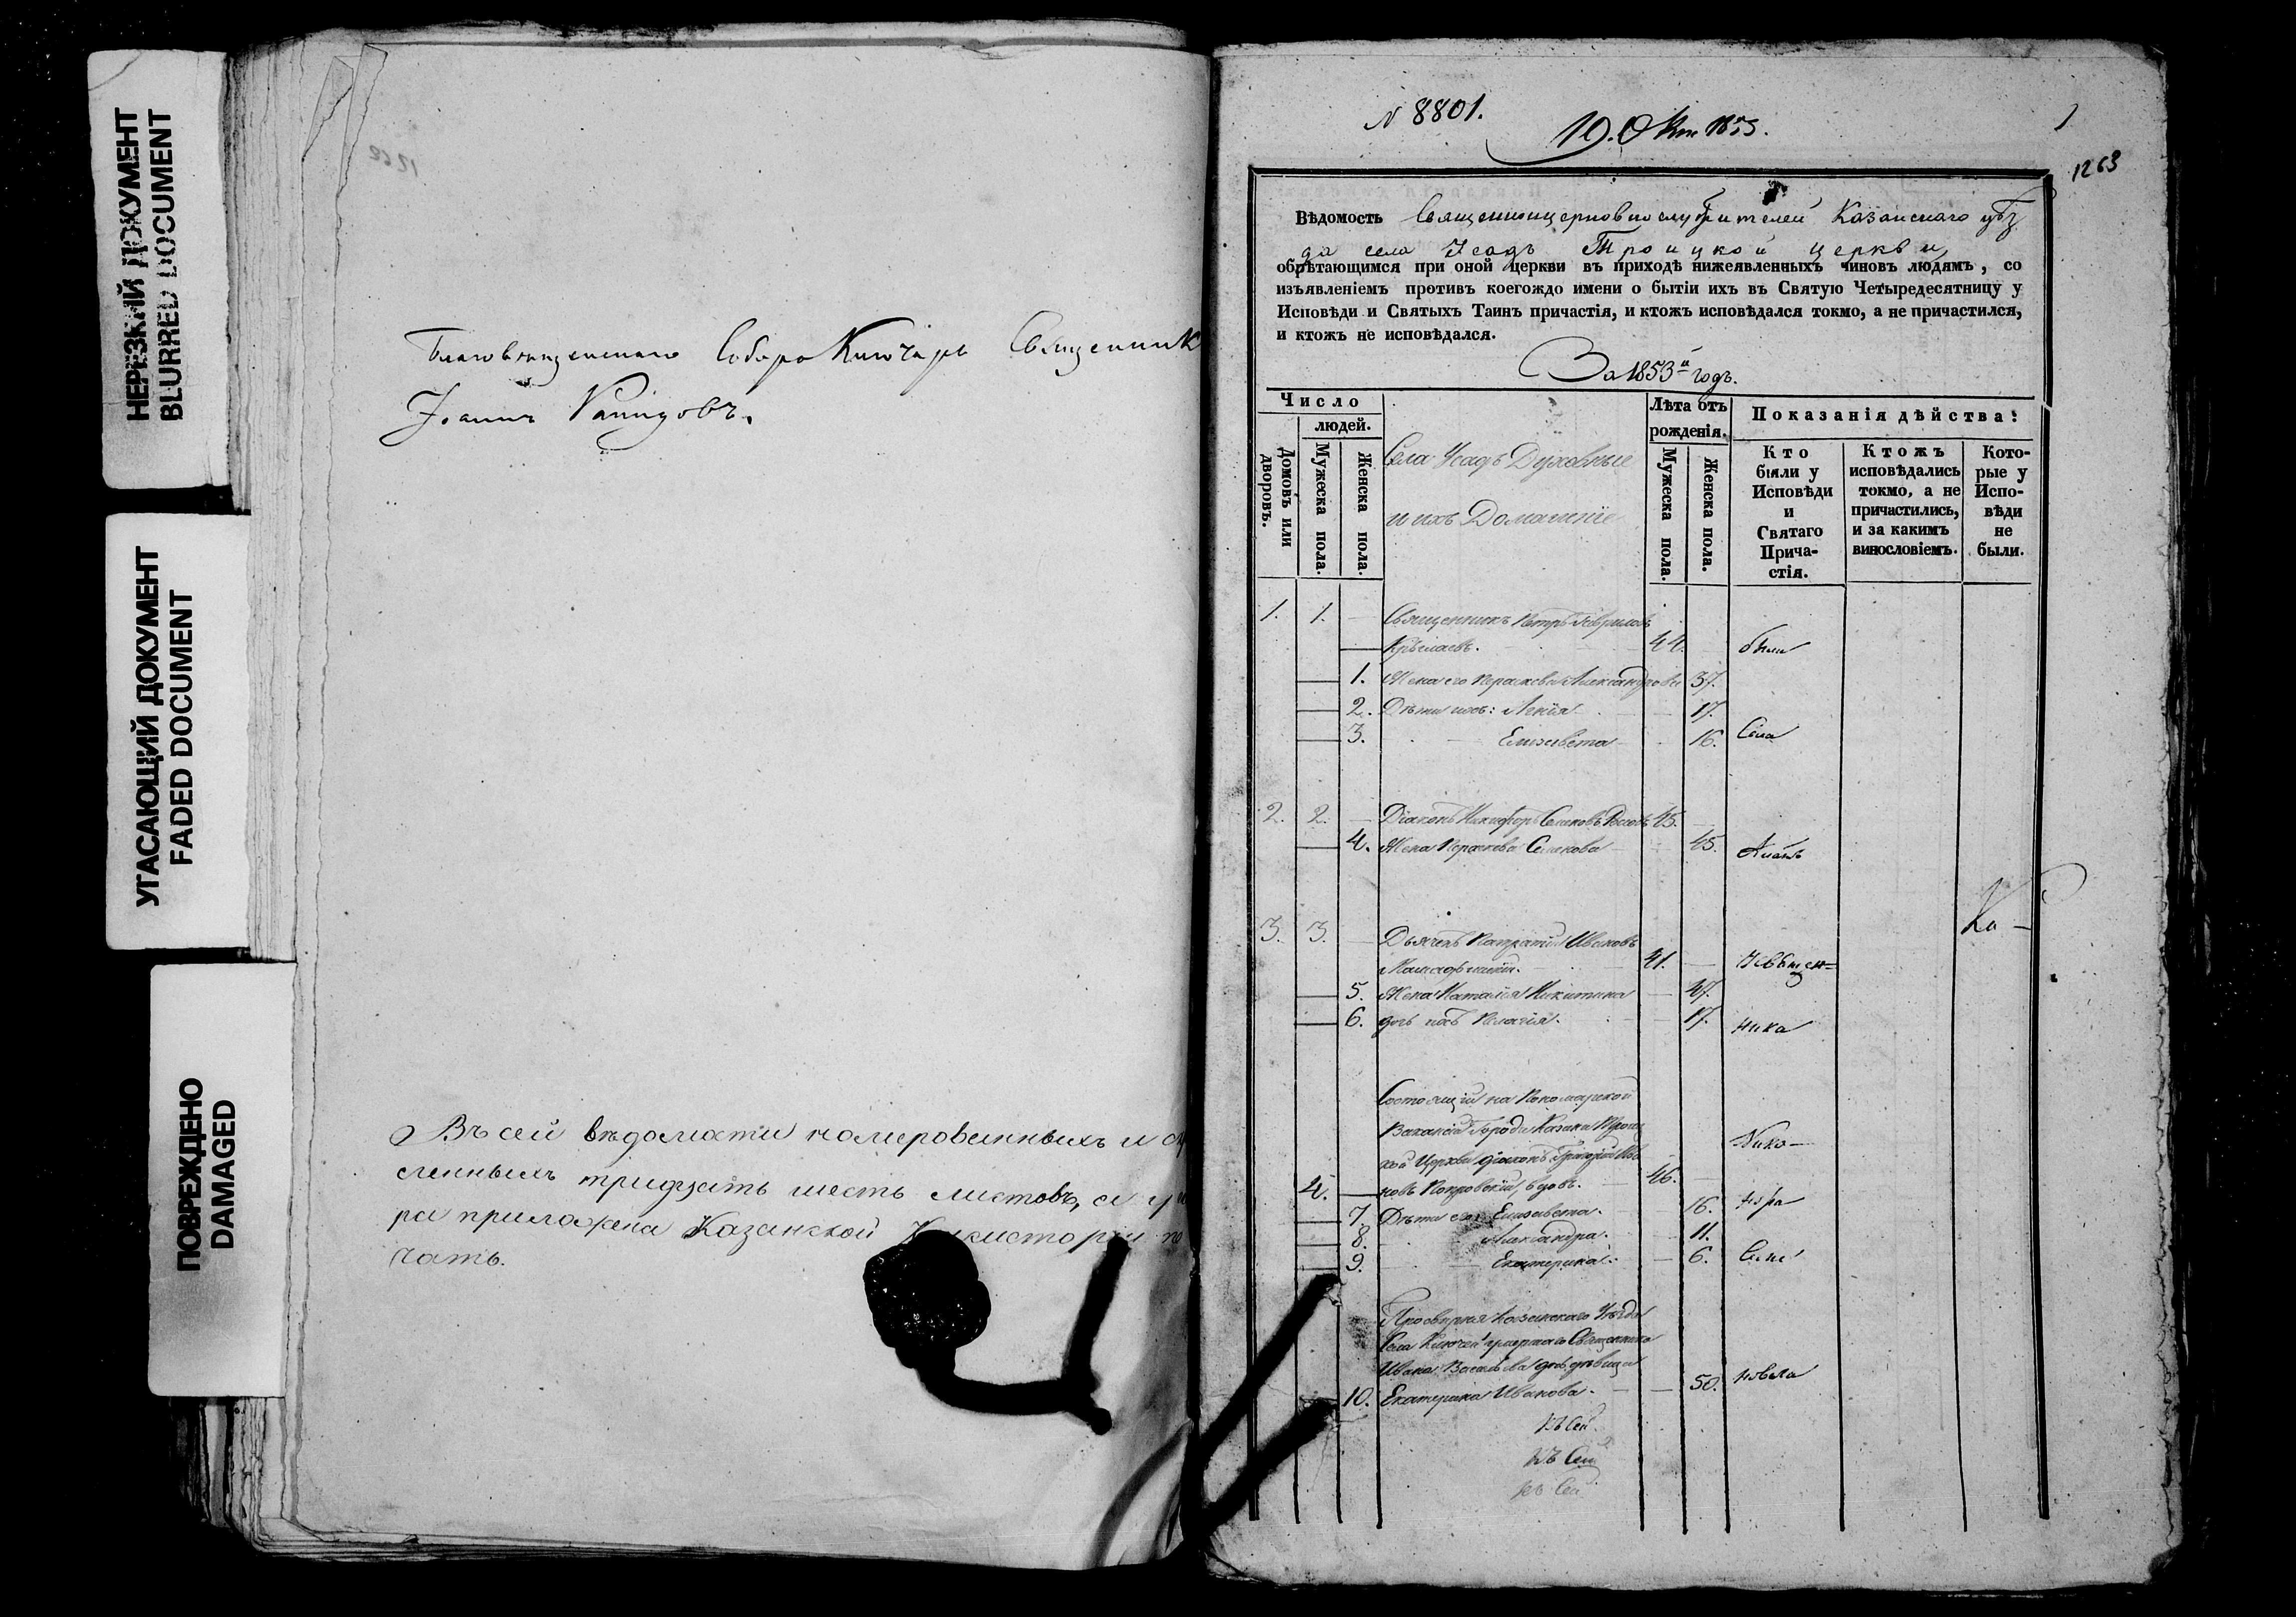 НЕРЕЗКИЙ ДОКУМЕНТ
BLURRED DOCUMENT
УГАСАЮЩИЙ ДОКУМЕНТ
FADED DOCUMENT
ПОВРЕЖДЕНО
DAMAGED
Благовѣщенскаго Собора Ключарь Священник
Іоаннъ
Въ сей вѣдомости номерованныхъ и
сленныхъ тридцать шесть листовъ, а у
ра приложена Казанской Консисторіи
чать.
N 8801.
19. Окт 1853.
1
1263
Вѣдомость Священноцерковнослужителей Казанскаго уѣз
да села Усадъ Троицкой церкви,
обрѣтающимся при оной церкви въ приходѣ нижеявленныхъ чиновъ людямъ, со
изъявленіемъ противъ коегождо имени о бытіи ихъ въ Святую Четыредесятницу у
Исповѣди и Святыхъ Таинъ причастія, и ктожъ исповѣдался токмо, а не причастился,
и ктожъ не исповѣдался.
За 1853й годъ.
Число
людей.
Домовъ или дворовъ.
Мужеска пола.
Женска пола.
Села Усадъ Духовные
и ихъ Домашніе
Лѣта отъ
рожденія.
Мужеска пола.
Женска пола.
Показанія дѣйства:
Кто
были у
Исповѣди
и
Святаго
Прича-
стія.
Ктожъ
исповѣдались
токмо, а не
причастились,
и за какимъ
винословіемъ.
Кото-
рые у
Испо-
вѣди
не
были.
1. 1. Священникъ Петръ Гавриловъ
44. были
1. Жена его Парасковья Александрова 37.
2. Дѣти ихъ: 17.
3. Елизавета 16. Села
2. 2. Діаконъ Никифоръ 45.
4. Жена 45.
3. 3. Дьячекъ Ивановъ
41. Священ-
5. Жена Наталія Никитина 47.
6. дочь ихъ Пелагія. 17. ника
Ка-
Состоящій на Пономарской
Ваканціи Города Казани
кой Церкви діаконъ Григорій
Нико-
4. новъ Покровскій, вдовъ. 46.
7. Дѣти его: Елизавета. 16.
8. Александра. 11.
9. Екатерина. 6.
Просвирня Казанскаго Уѣзда
Села Ключей умершаго Священника
Ивана Васильева дочь дѣвица
10. Екатерина Иванова. 50.
Къ Сей
Къ Сей
Къ Сей